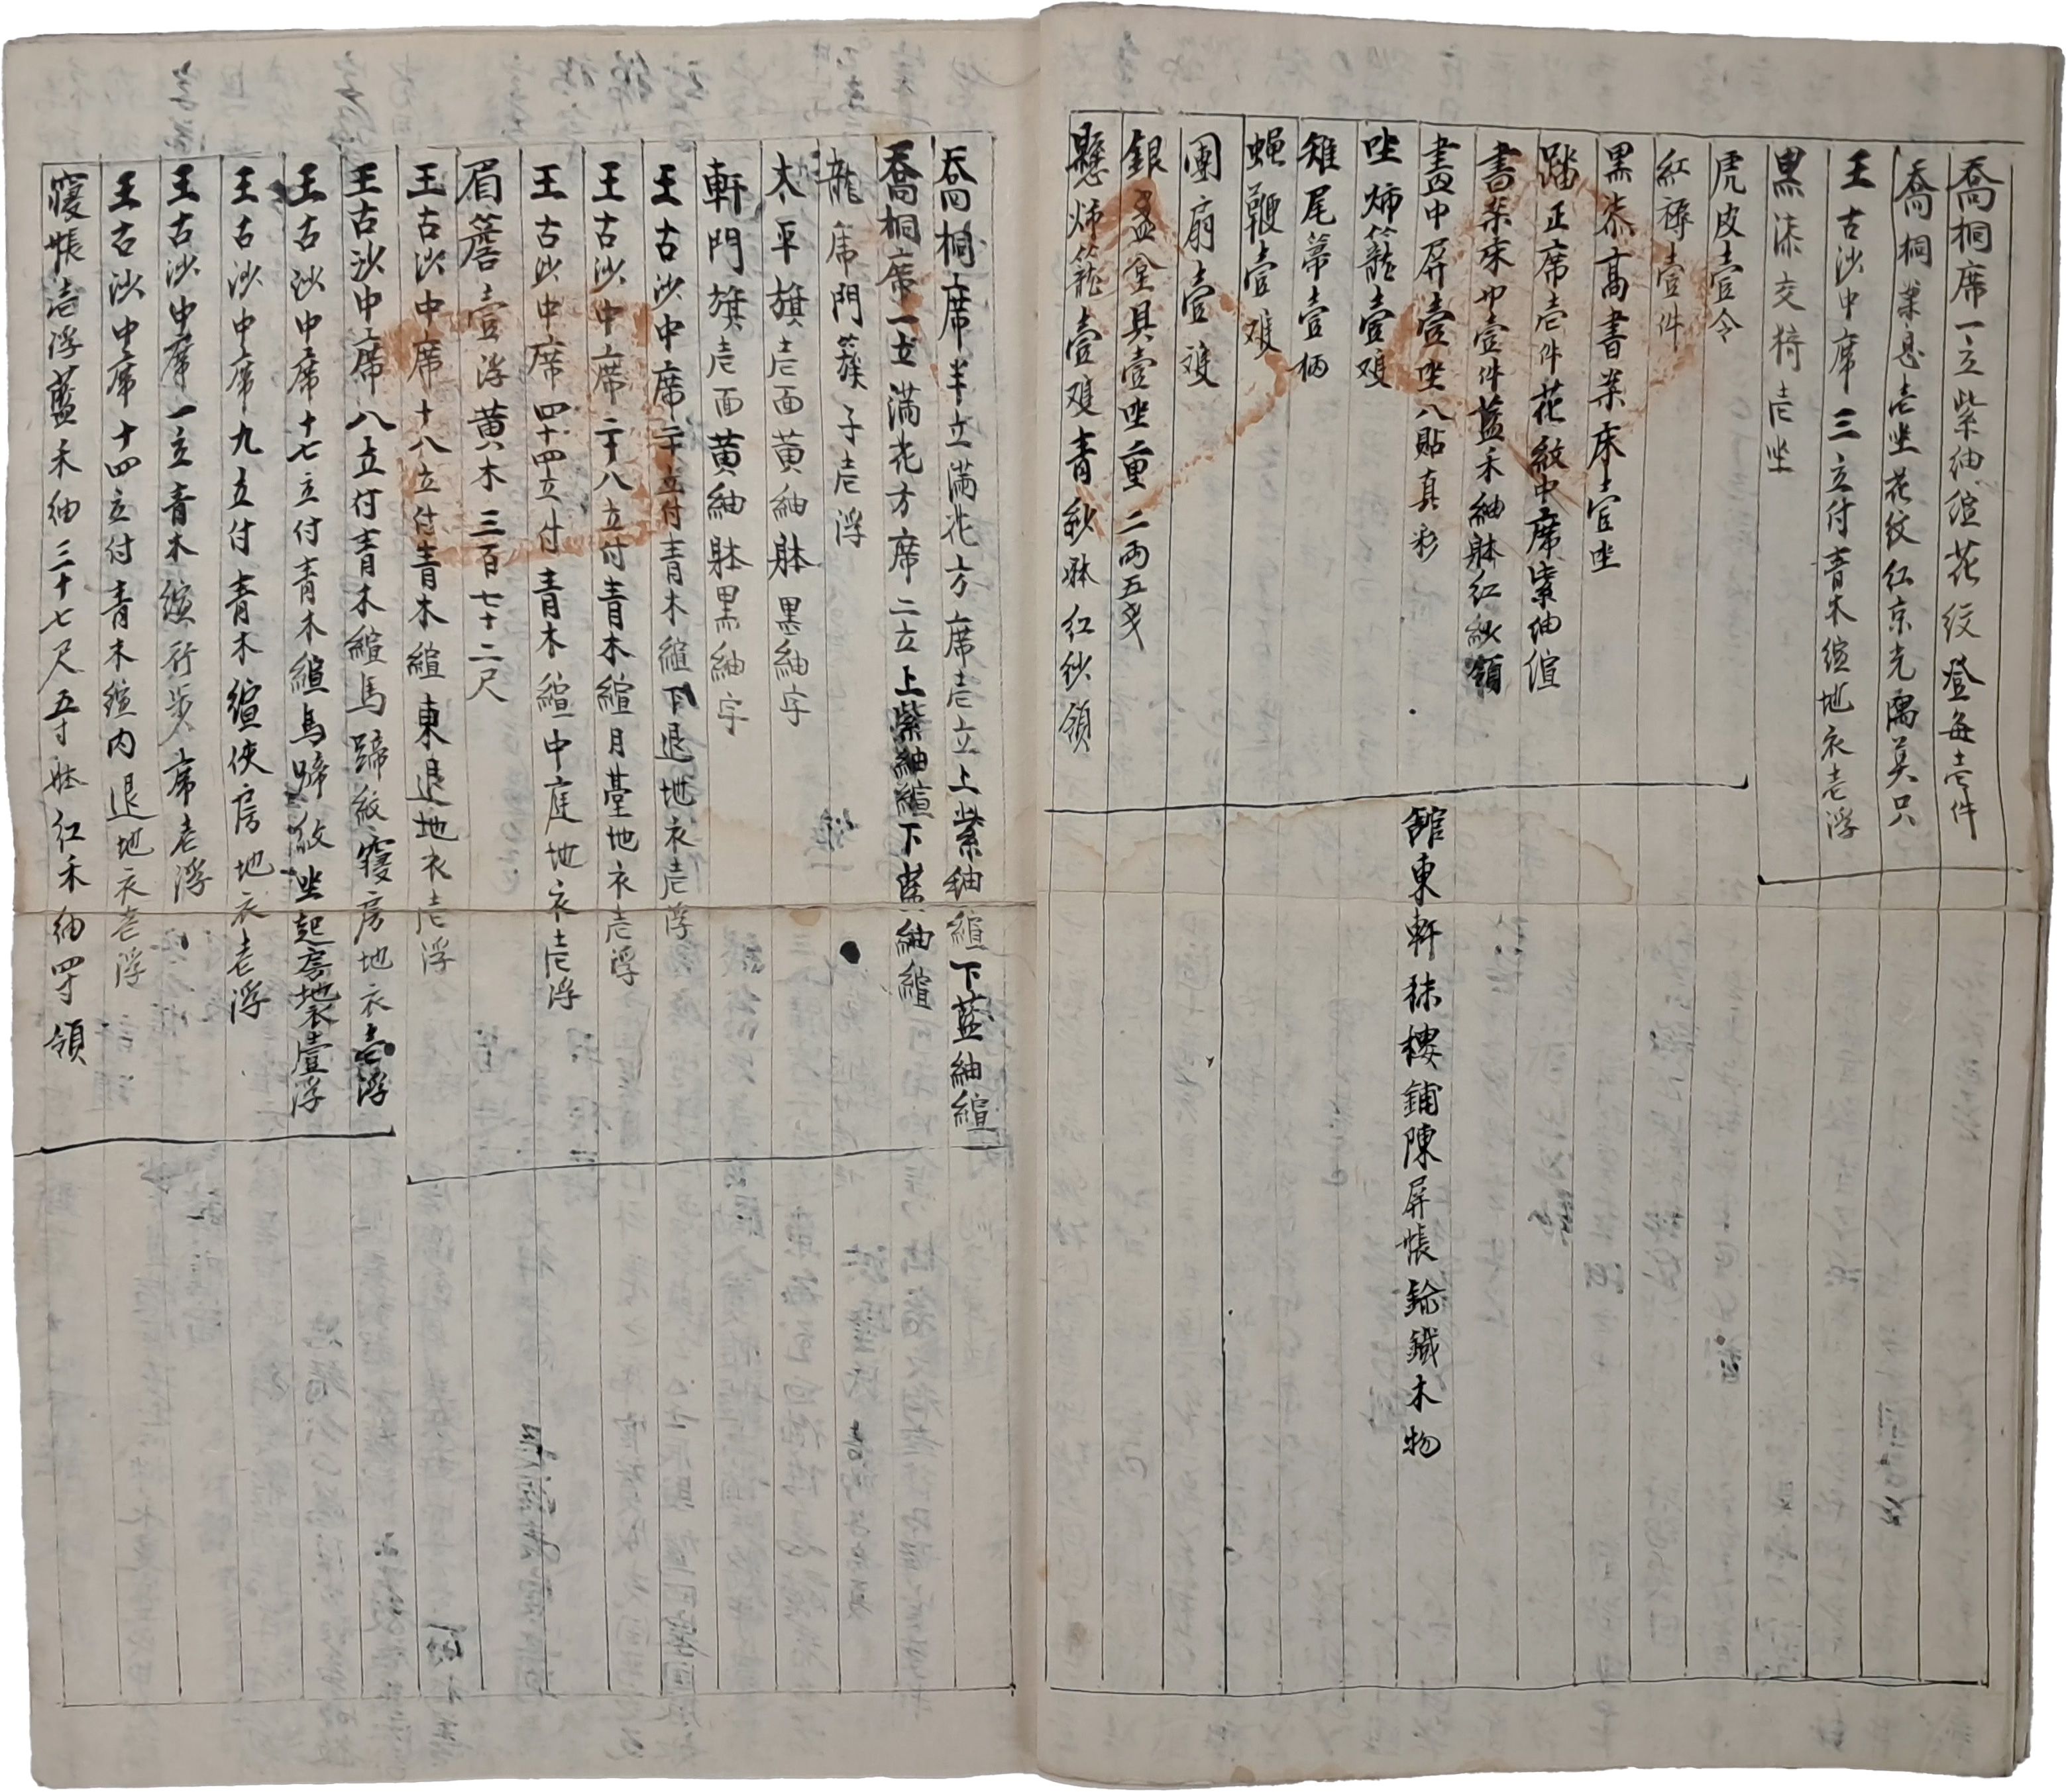 喬桐席一立紫紬縇花紋登每壱件
喬桐案息壱坐花紋紅京光隅莫只
王古沙中席三立付青木縇地衣壱浮
黑漆交椅壱坐
虎皮壹令
紅褥壹件
黑漆高書案床壹坐
踏正席壱件花紋中席紫紬縇
書案床巾壹件藍禾紬躰紅紗領
畫中屛壹坐八貼真彩
坐炳籠壹雙
雉尾箒壹柄
蝇鞭壹雙
團扇壹雙
銀盃臺具壹坐重二兩五戔
懸炳籠壹雙青紗躰紅紗領
舘東軒秣樓鋪陳屛帳鍮鐵木物
喬桐席半立滿花方席壱立上紫紬縇下藍紬縇
喬桐席一立滿花方席二立上紫紬縇下藍紬縇
龍席門簇子壱浮
太平旗壱面黃紬躰黑紬字
軒門旗壱面黃紬躰黑紬字
王古沙中席二十立付青木縇下退地衣壱浮
王古沙中席二十八立付青木縇月臺地衣壱浮
王古沙中席四十四立付青木縇中庭地衣壱浮
眉簷壹浮黃木三百七十二尺
王古沙中席十八立付青木縇東退地衣壱浮
王古沙中席八立付青木縇馬蹄紋寢房地衣壱浮
王古沙中席十七立付青木縇馬蹄紋坐起房地衣壹浮
王古沙中席九立付青木縇俠房地衣壱浮
王古沙中席一立青木縇行步席壱浮
王古沙中席十四立付青木縇內退地衣壱浮
寢帳壱浮藍禾紬三十七尺五寸躰紅禾紬四寸領